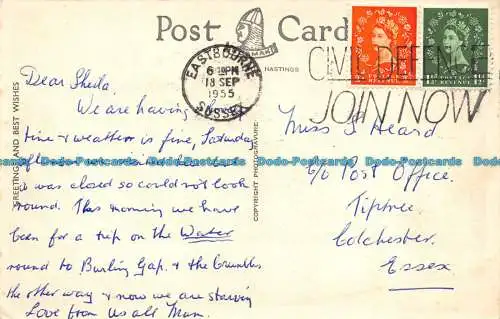 Post Card
EASTBOURNE
6 PM
18 SEP
1955
SUSSEX
CIVIL DEFENCE
JOIN NOW
HASTINGS
GREETINGS AND BEST WISHES
COPYRIGHT PHOTOGRAVURE:
POSTAGE REVENUE
Dear Sheila.
We are having
time & weather is fine, Saturday
was closed so couldn't look
round. This morning we have
been for a trip on the Water
round to Burling Gap. & the Crumbles
the other way & now we are starving
Love from Us all Mum.
Miss S Heard
c/o Post Office.
Tiptree.
Colchester.
Essex
Dodo-Postcards Dodo-Postcards Dodo-Postcards Dodo-Postcards Dodo-Postcards